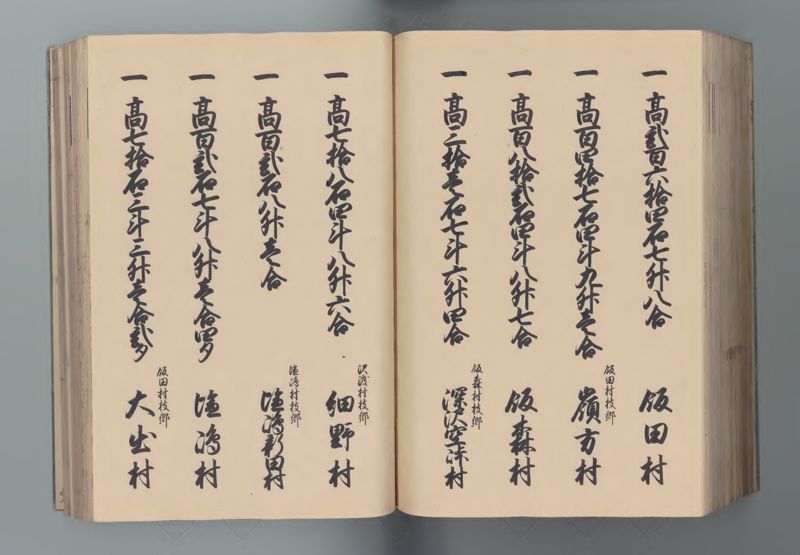 一 高弐百六拾四石七升八合 飯田村
一 高百四拾七石四斗九升壱合 飯田村枝郷 嶺方村
一 高百八拾弐石四斗八升七合 飯森村
一 高三拾壱石七斗六升四合 飯森村枝郷 深沢空峠村
一 高七拾八石四斗八升六合 沢渡村枝郷 細野村
一 高百弐石八升壱合 塩嶋村枝郷 塩嶋新田村
一 高百弐石七斗八升壱合四夕 塩嶋村
一 高七拾石三斗三升壱合弐夕 飯田村枝郷 大出村